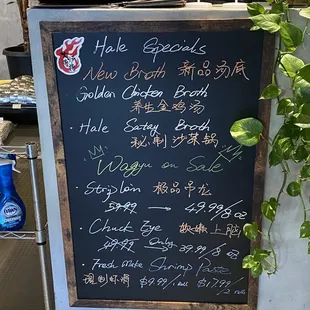 Hale Specials
New Broth 新品汤底
Golden Chicken Broth
养生金鸡汤
· Hale Satay Broth
秘制沙茶锅
Wagyu on Sale
· Striploin 极品吊龙
59.99 → 49.99/8oz
· Chuck Eye 软嫩上脑
49.99 Only 39.99/8oz
· Fresh Make Shrimp Paste
$9.99/1 roll $17.99/2 rolls